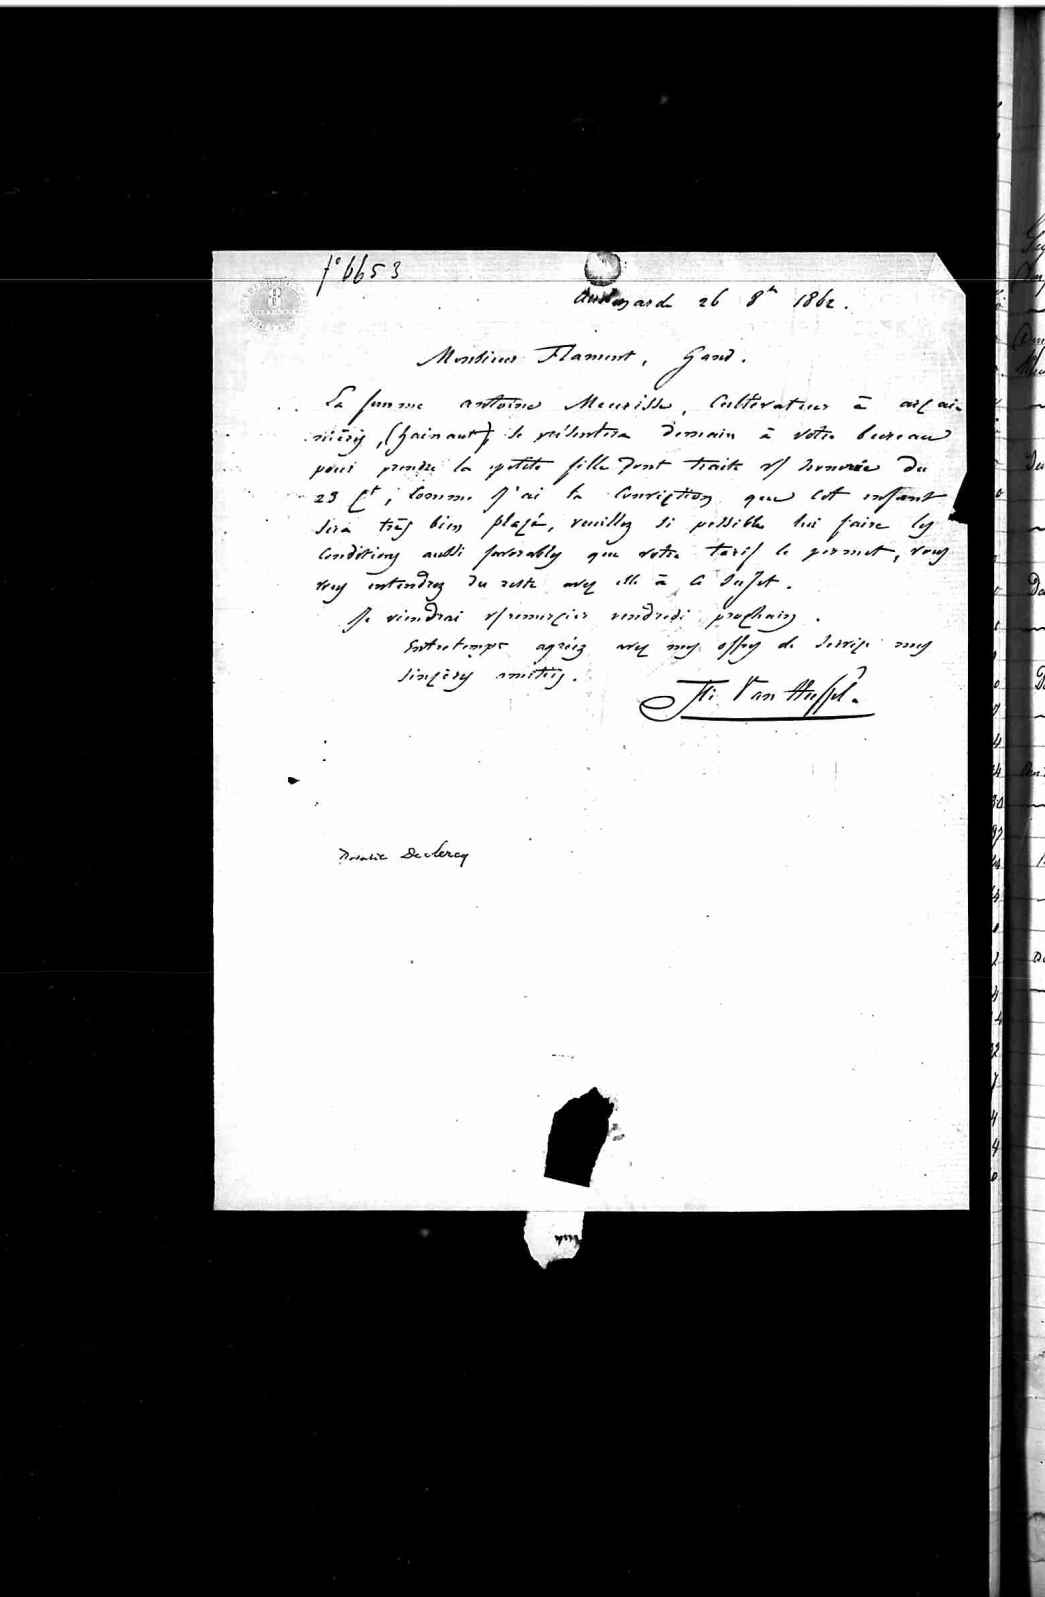 f° 6653
Audenarde 26 8bre 1862.
Monsieur Flament, Gand.
La femme antoine Meurisse, Cultivateur à arc ai-
nières, (hainaut) se présentera demain à votre bureau
pour prendre la petite fille dont traite v/ honorée du
23 Ct; Comme j'ai la Conviction que cet enfant
sera très bien placé, veuillez si possible lui faire les
Conditions aussi favorables que votre tarif le permet, vous
vous entendrez du reste avec elle à ce sujet.
Je viendrai v/ remercier vendredi prochain.
Entretemps agréez avec mes offres de service mes
sincères amitiés.
Van
Rosalie Declercq